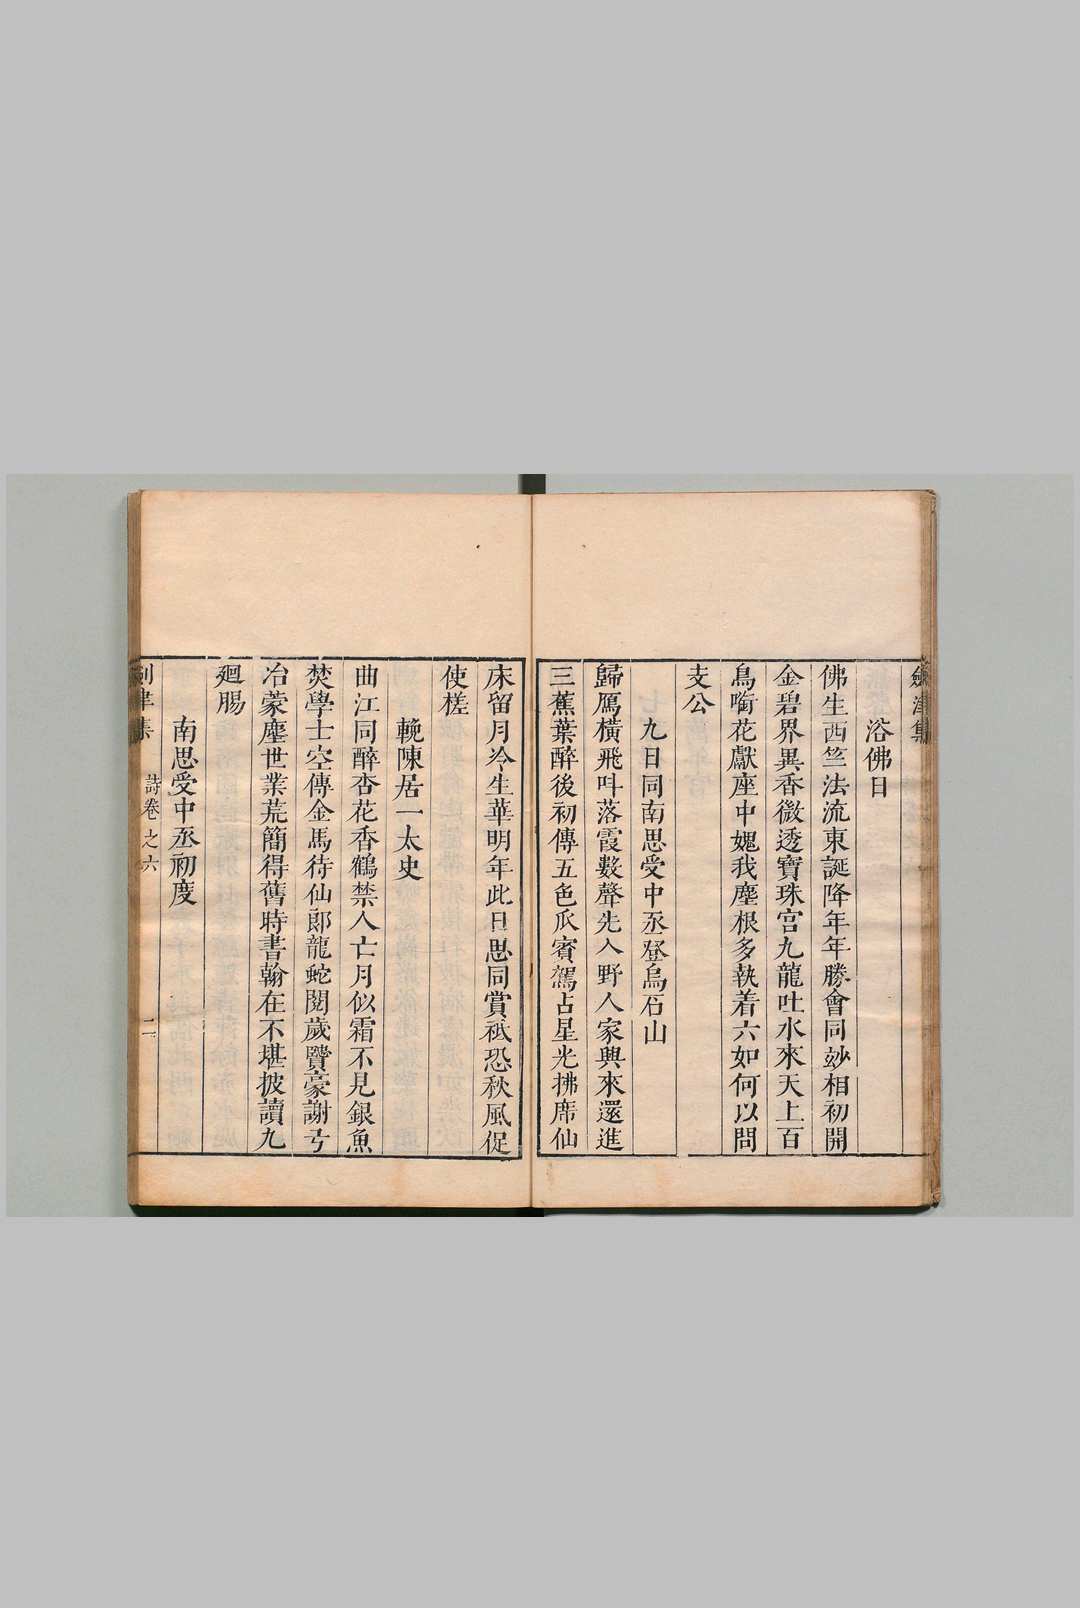 劍津集
浴佛日
佛生西竺法流東誕降年年勝會同玅相初開
金碧界異香微透寶珠宮九龍吐水來天上百
鳥啣花獻座中媿我塵根多執着六如何以問
支公
九日同南思受中丞登烏石山
歸鴈橫飛呌落霞數聲先入野人家興來還進
三蕉葉醉後初傳五色瓜賓駕占星光拂席仙
床留月冷生華明年此日思同賞秪恐秋風促
使槎
輓陳居一太史
曲江同醉杏花香鶴禁人亡月似霜不見銀魚
焚學士空傳金馬待仙郎龍蛇閱歲賢豪謝弓
冶蒙塵世業荒簡得舊時書翰在不堪披讀九
廻腸
南思受中丞初度
劍津集 詩卷之六